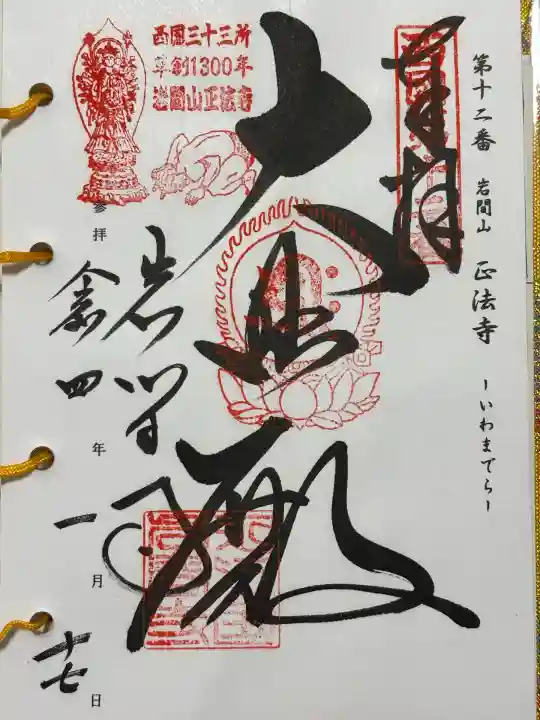 第十二番 岩間山 正法寺 ーいわまでらー
奉拝
大悲殿
西国三十三所
草創1300年
岩間山正法寺
岩間寺
参拝
令和四年一月十七日